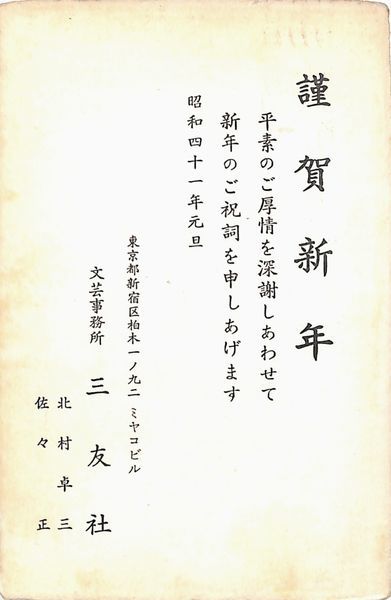 謹賀新年
平素のご厚情を深謝しあわせて
新年のご祝詞を申しあげます
昭和四十一年元旦
東京都新宿区柏木一ノ九二 ミヤコビル
文芸事務所 三友社
北村卓三
佐々正